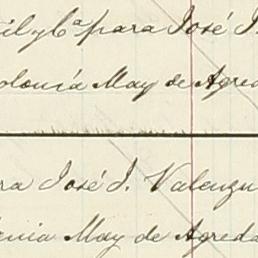 il y Cª para José I.
olonia May de Agreda
ra José I. Valenzu
enia May de Agreda